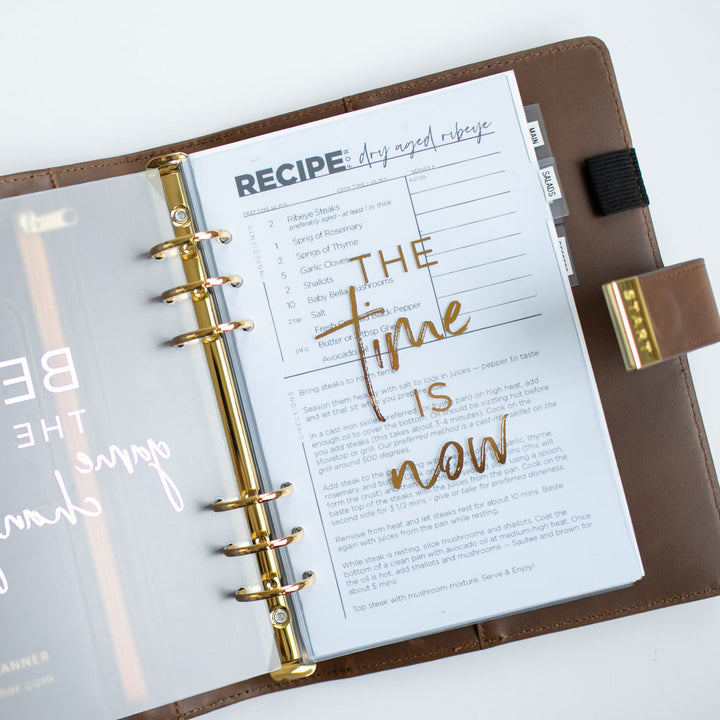 RECIPE FOR dry aged ribeye
PREP TIME 45 MIN
COOK TIME 45 MIN
SERVES 2
INGREDIENTS
NOTES
2 Ribeye Steaks
preferably aged - at least 1 in thick
1 Sprig of Rosemary
2 Sprigs of Thyme
5 Garlic Cloves
2 Shallots
10 Baby Bella Mushrooms
2 tsp Salt
Pepper
Butter or
1/4 c Avocado
THE
time
IS
now
DIRECTIONS
Bring steaks to room temp
Season them with salt to lock in juices — pepper to taste
and let that sit
In a cast-iron skillet pan) on high heat, add
enough oil to cover the bottom. Oil should be sizzling hot before
you add steaks (this takes about 3-4 minutes). Cook on the
stovetop or grill. Our preferred method is a cast-iron skillet on the
grill around 500 degrees.
Add steak to the garlic, thyme,
rosemary, and (this will
form the crust) and using a spoon,
baste top of the steaks with the juices from the pan. Cook on the
second side for 3 1/2 mins - give or take for preferred doneness.
Remove from heat and let steaks rest for about 10 mins. Baste
again with juices from the pan while resting.
While steak is resting, slice mushrooms and shallots. Coat the
bottom of a clean pan with avocado oil at medium-high heat. Once
the oil is hot, add shallots and mushrooms — Sautee and brown for
about 5 mins
Top steak with mushroom mixture. Serve & Enjoy!
MAIN
SALADS
START
BE
THE
game
ANNER
ner.com